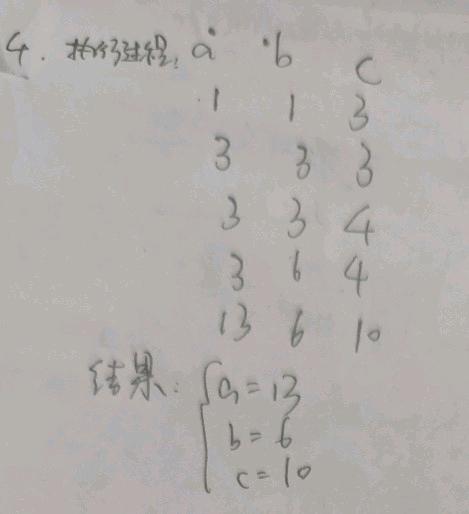 4. 执行过程: a b c
1 1 3
3 3 3
3 3 4
3 6 4
13 6 10
结果: a=13
b=6
c=10